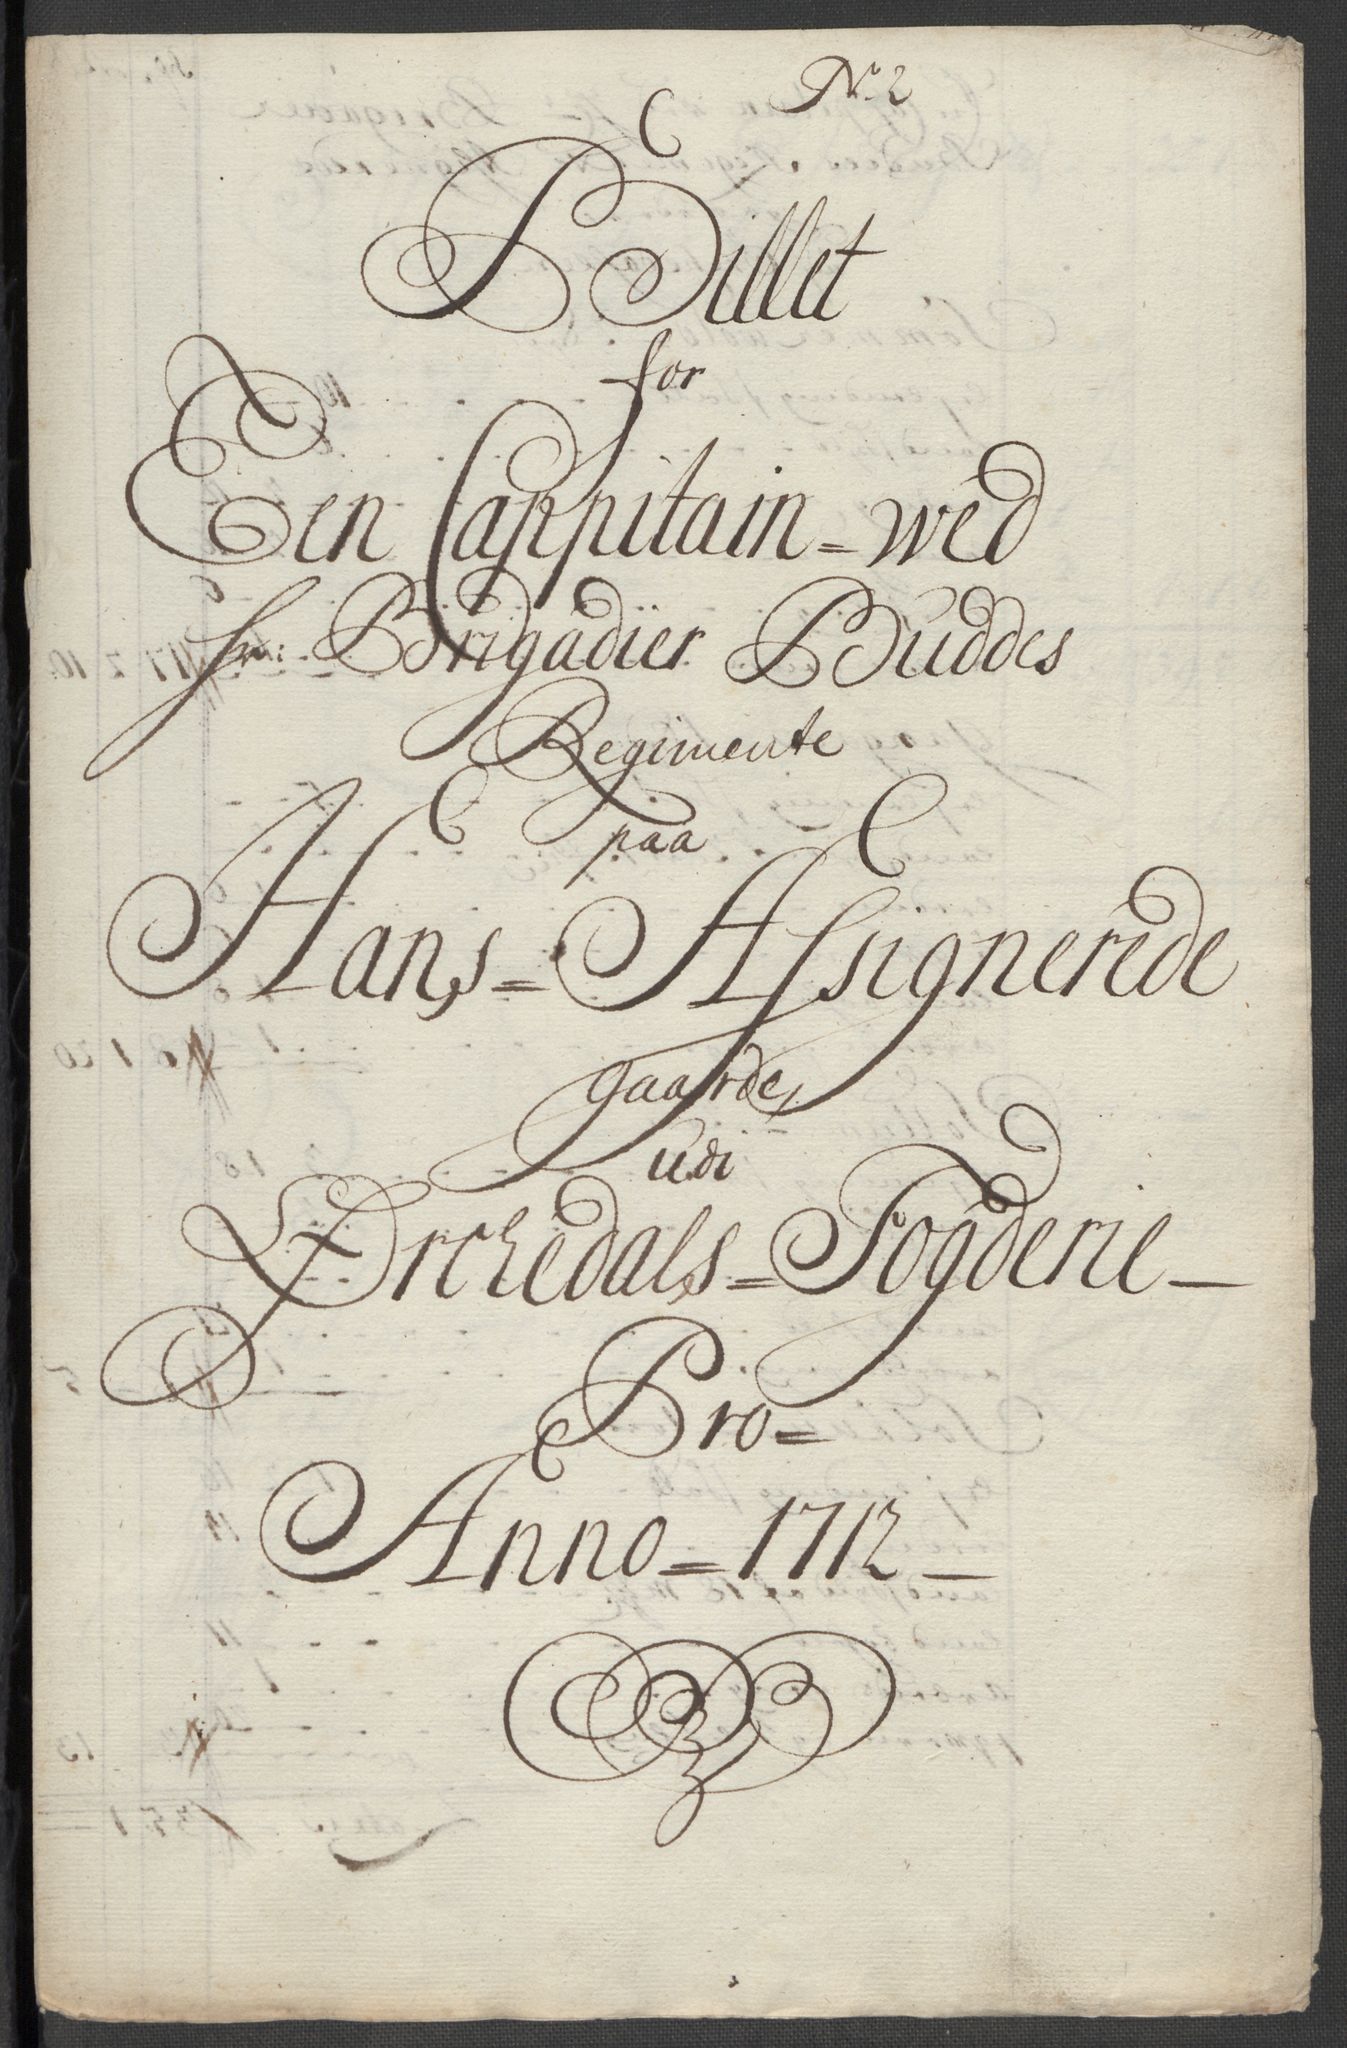 No 2
Billet
for
Een Cappitain = wed
Hr: Brigadier Buddes
Regimente
paa
Hans = Assignerede
gaarde,
udi
Orckedals = Fogderie -
Pro =
Anno = 1712 -